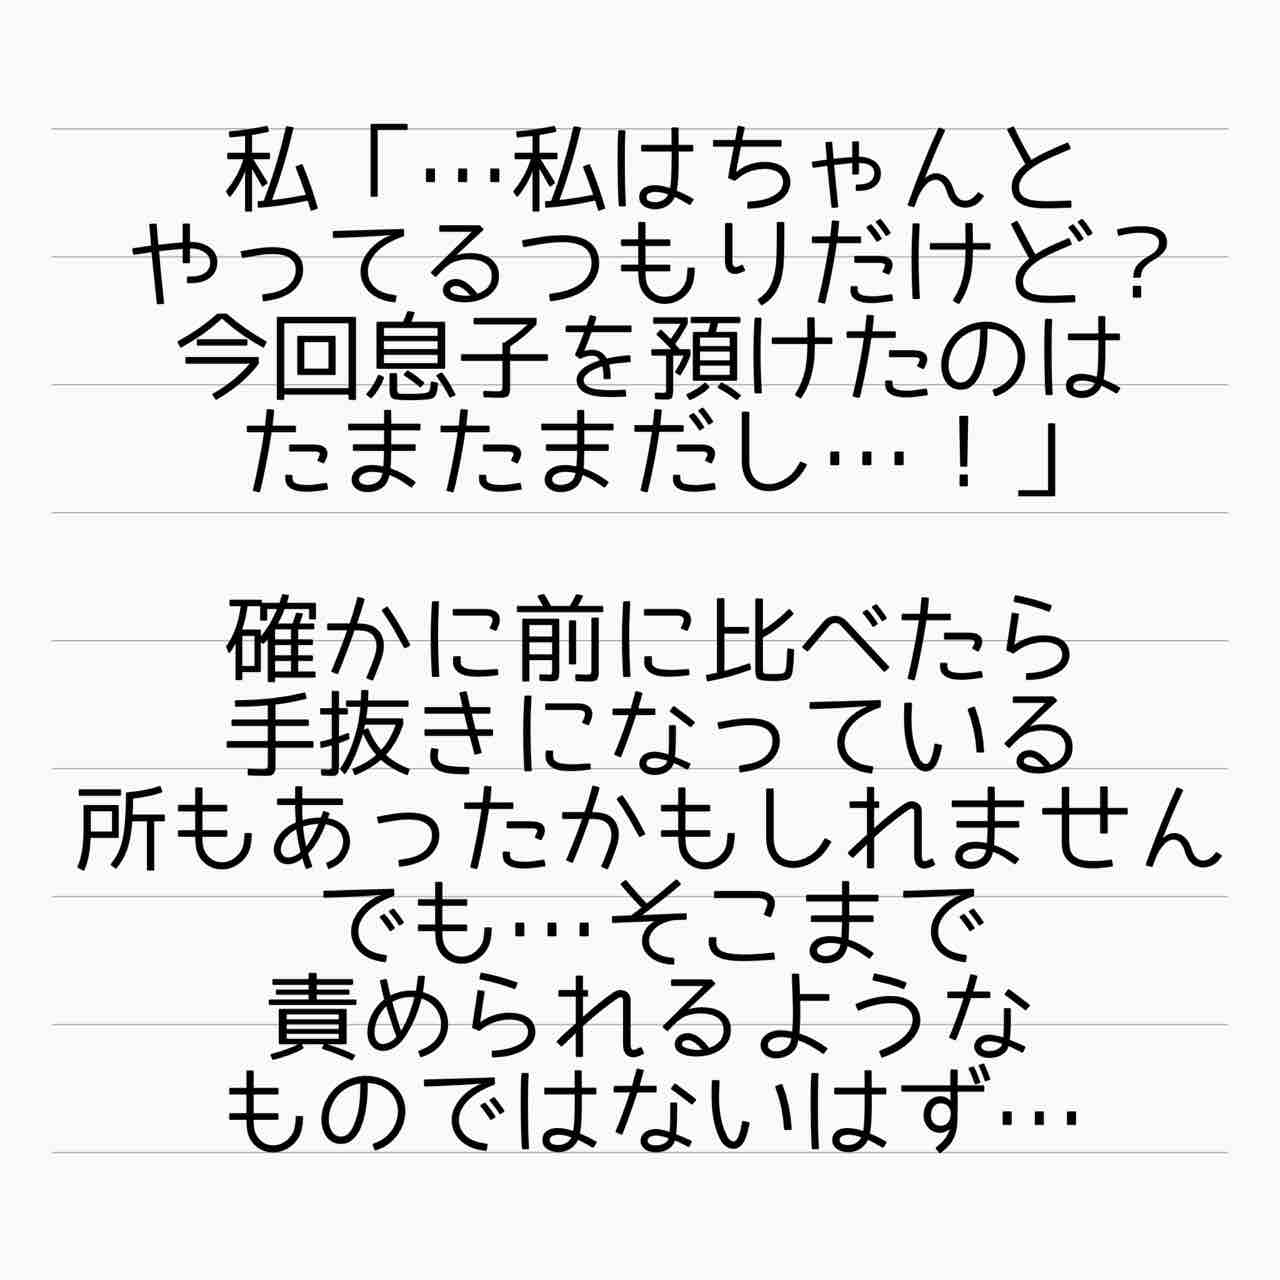 私「…私はちゃんと
やってるつもりだけど？
今回息子を預けたのは
たまたまだし…！」
確かに前に比べたら
手抜きになっている
所もあったかもしれません
でも…そこまで
責められるような
ものではないはず…